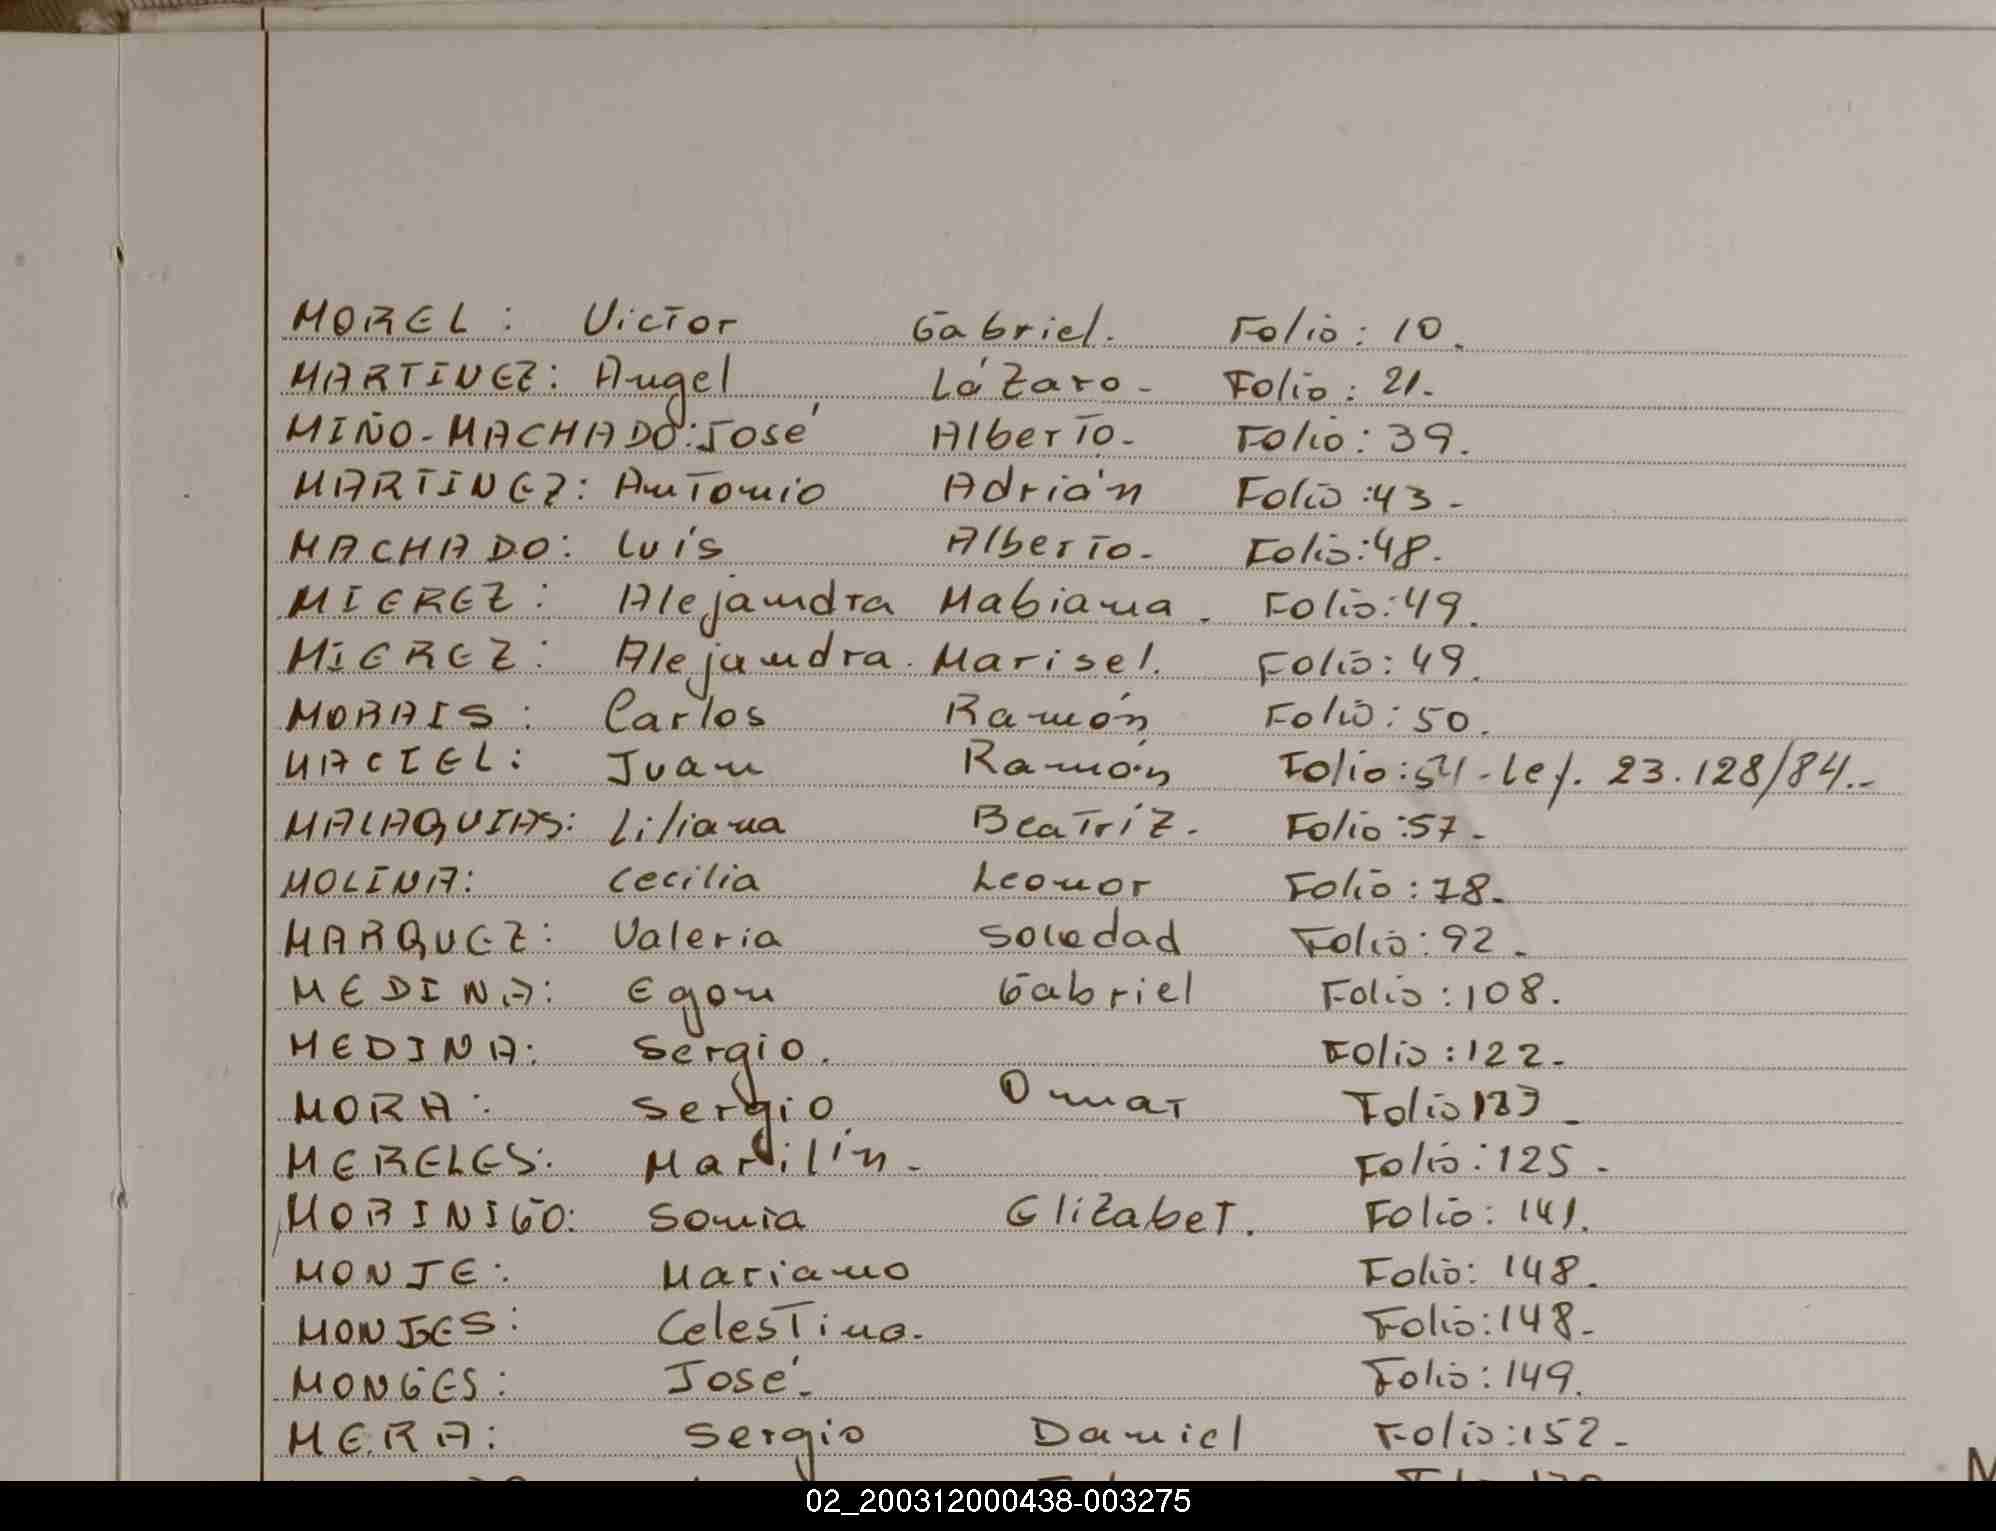 MOREL: Victor Gabriel. Folio: 10.
MARTINEZ: Angel Lázaro- Folio: 21.-
MIÑO-MACHADO: José Alberto- Folio: 39.
MARTINEZ: Antonio Adrián Folio: 43-
MACHADO: Luís Alberto- Folio: 48.
MIEREZ: Alejandra Mabiana. Folio: 49.
MIEREZ: Alejandra. Marisel. Folio: 49.
MORAIS: Carlos Ramón Folio: 50.
MACIEL: Juan Ramón Folio: 54-Ley. 23.128/84.-
MALAQUIAS: Liliana Beatríz- Folio: 57-
MOLINA: Cecilia Leonor Folio: 78-
MARQUEZ: Valeria Soledad Folio: 92-
MEDINA: Egon Gabriel Folio: 108.
MEDINA: Sergio. Folio: 122-
MORA: Sergio Omar Folio
MERELES: Marilín- Folio: 125-
MORINIGO: Sonia Elizabet. Folio: 141.
MONJE: Mariano Folio: 148.
Celestino. Folio: 148-
MONGES: José- Folio: 149.
MERA: Sergio Daniel Folio: 152-
02_200312000438-003275